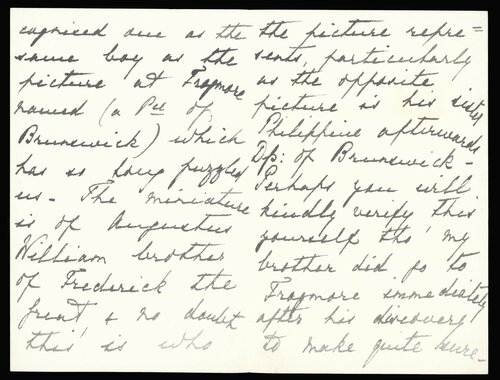 cognised one as the
same boy as the
picture at Frogmore
named (a Pce of
Brunswick) which
has so long puzzled
us - The miniature
is of Augustus
William brother
of Frederick the
Great & no doubt
this is who
the picture repre=
sents, particularly
as the opposite
picture is his sister
Philippine afterwards
Dss: of Brunswick -
Perhaps you will
kindly verify this
yourself tho' my
brother did go to
Frogmore immediately
after his discovery
to make quite sure -